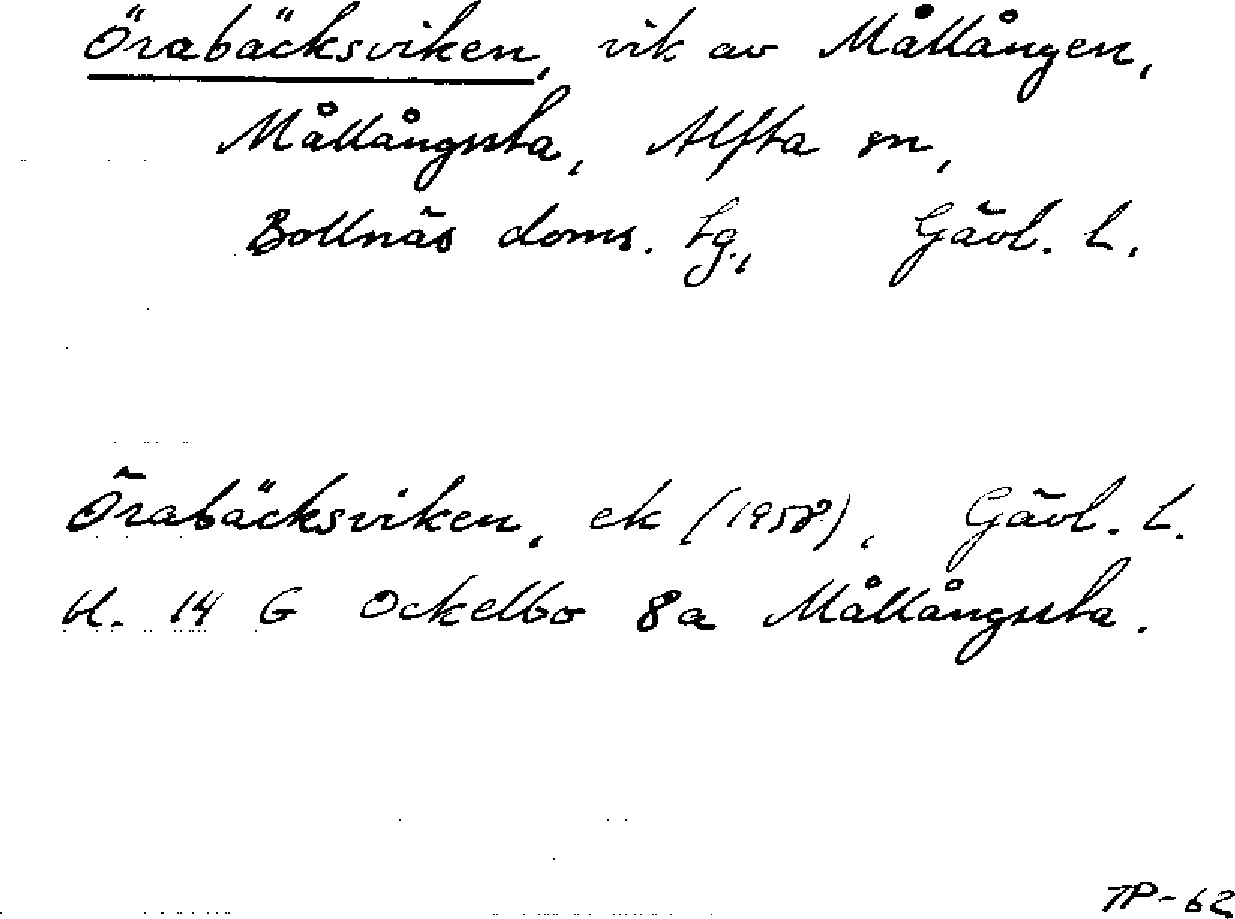 Örabäcksviken, vik av Mållången,
Mållångssta, Alfta sn,
Bollnäs doms. tg., Gävl. l.
Örabäcksviken, ek (1958), Gävl. l.
bl. 14 G Ockelbo 8a Mållångssta.
TP-62